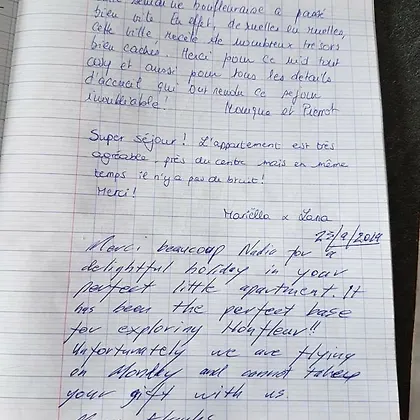 semaine honfleuraise a passé
bien vite. En effet, de ruelles en ruelles,
cette ville recèle de nombreux trésors
bien cachés. Merci pour ce nid tout
cosy et aussi pour tous les détails
d'accueil qui ont rendu ce séjour
inoubliable!
Monique et Pierrot
Super séjour! L'appartement est très
agréable - près du centre mais en même
temps il n'y a pas de bruit!
Merci!
Mariëlla & Lana
23/9/2019
Merci beaucoup Nadia for a
delightful holiday in your
perfect little apartment. It
has been the perfect base
for exploring Honfleur!!
Unfortunately we are flying
on Monday and cannot take
your gift with us.
thanks